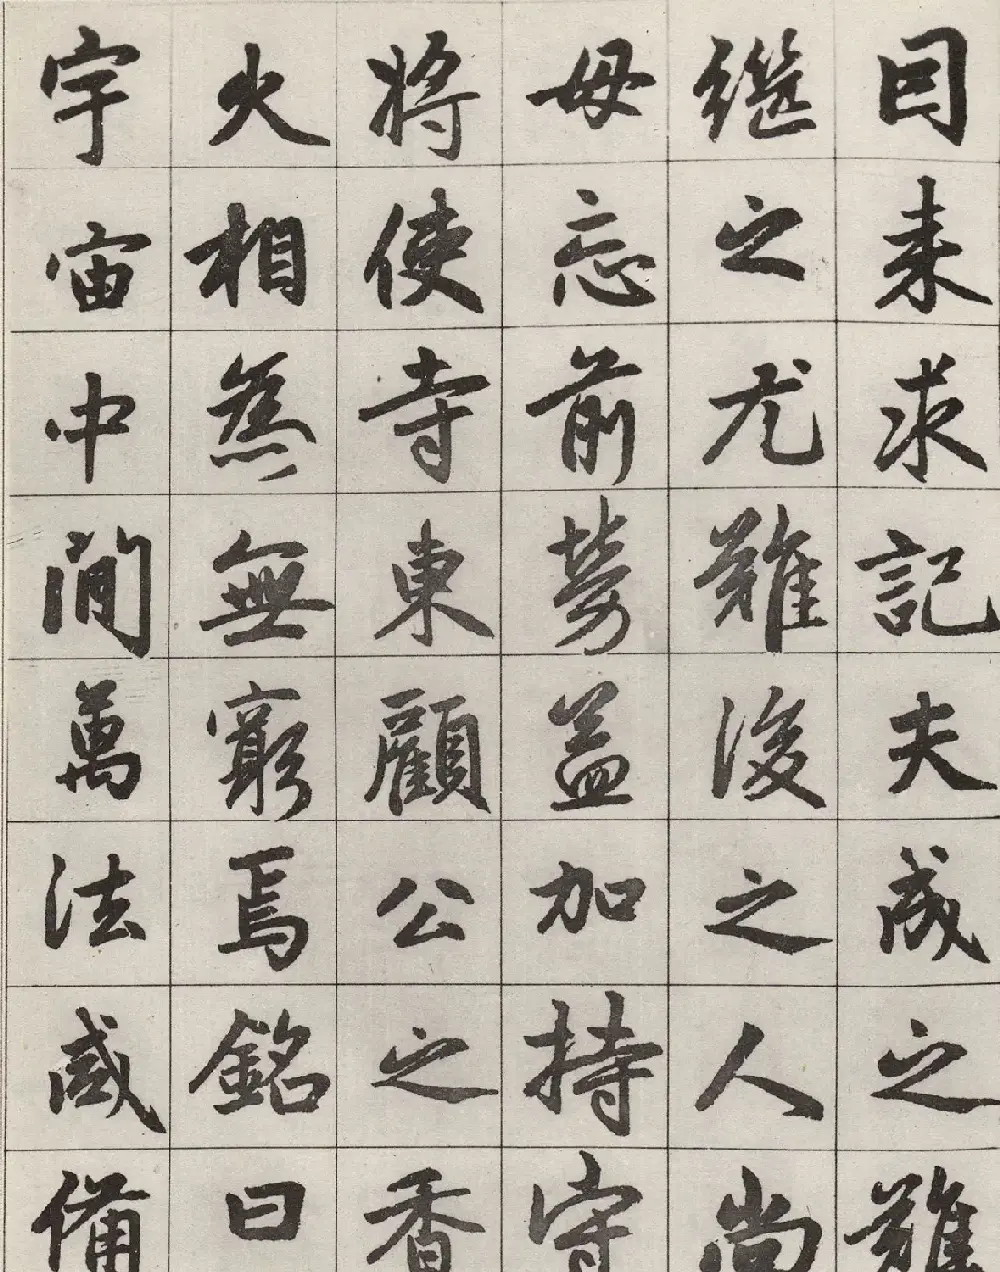 因来求記夫成之難
継之尤難後之人尚
毋忘前勞益加持守
将使寺東顧公之香
火相為無窮焉銘曰
宇宙中間萬法咸備